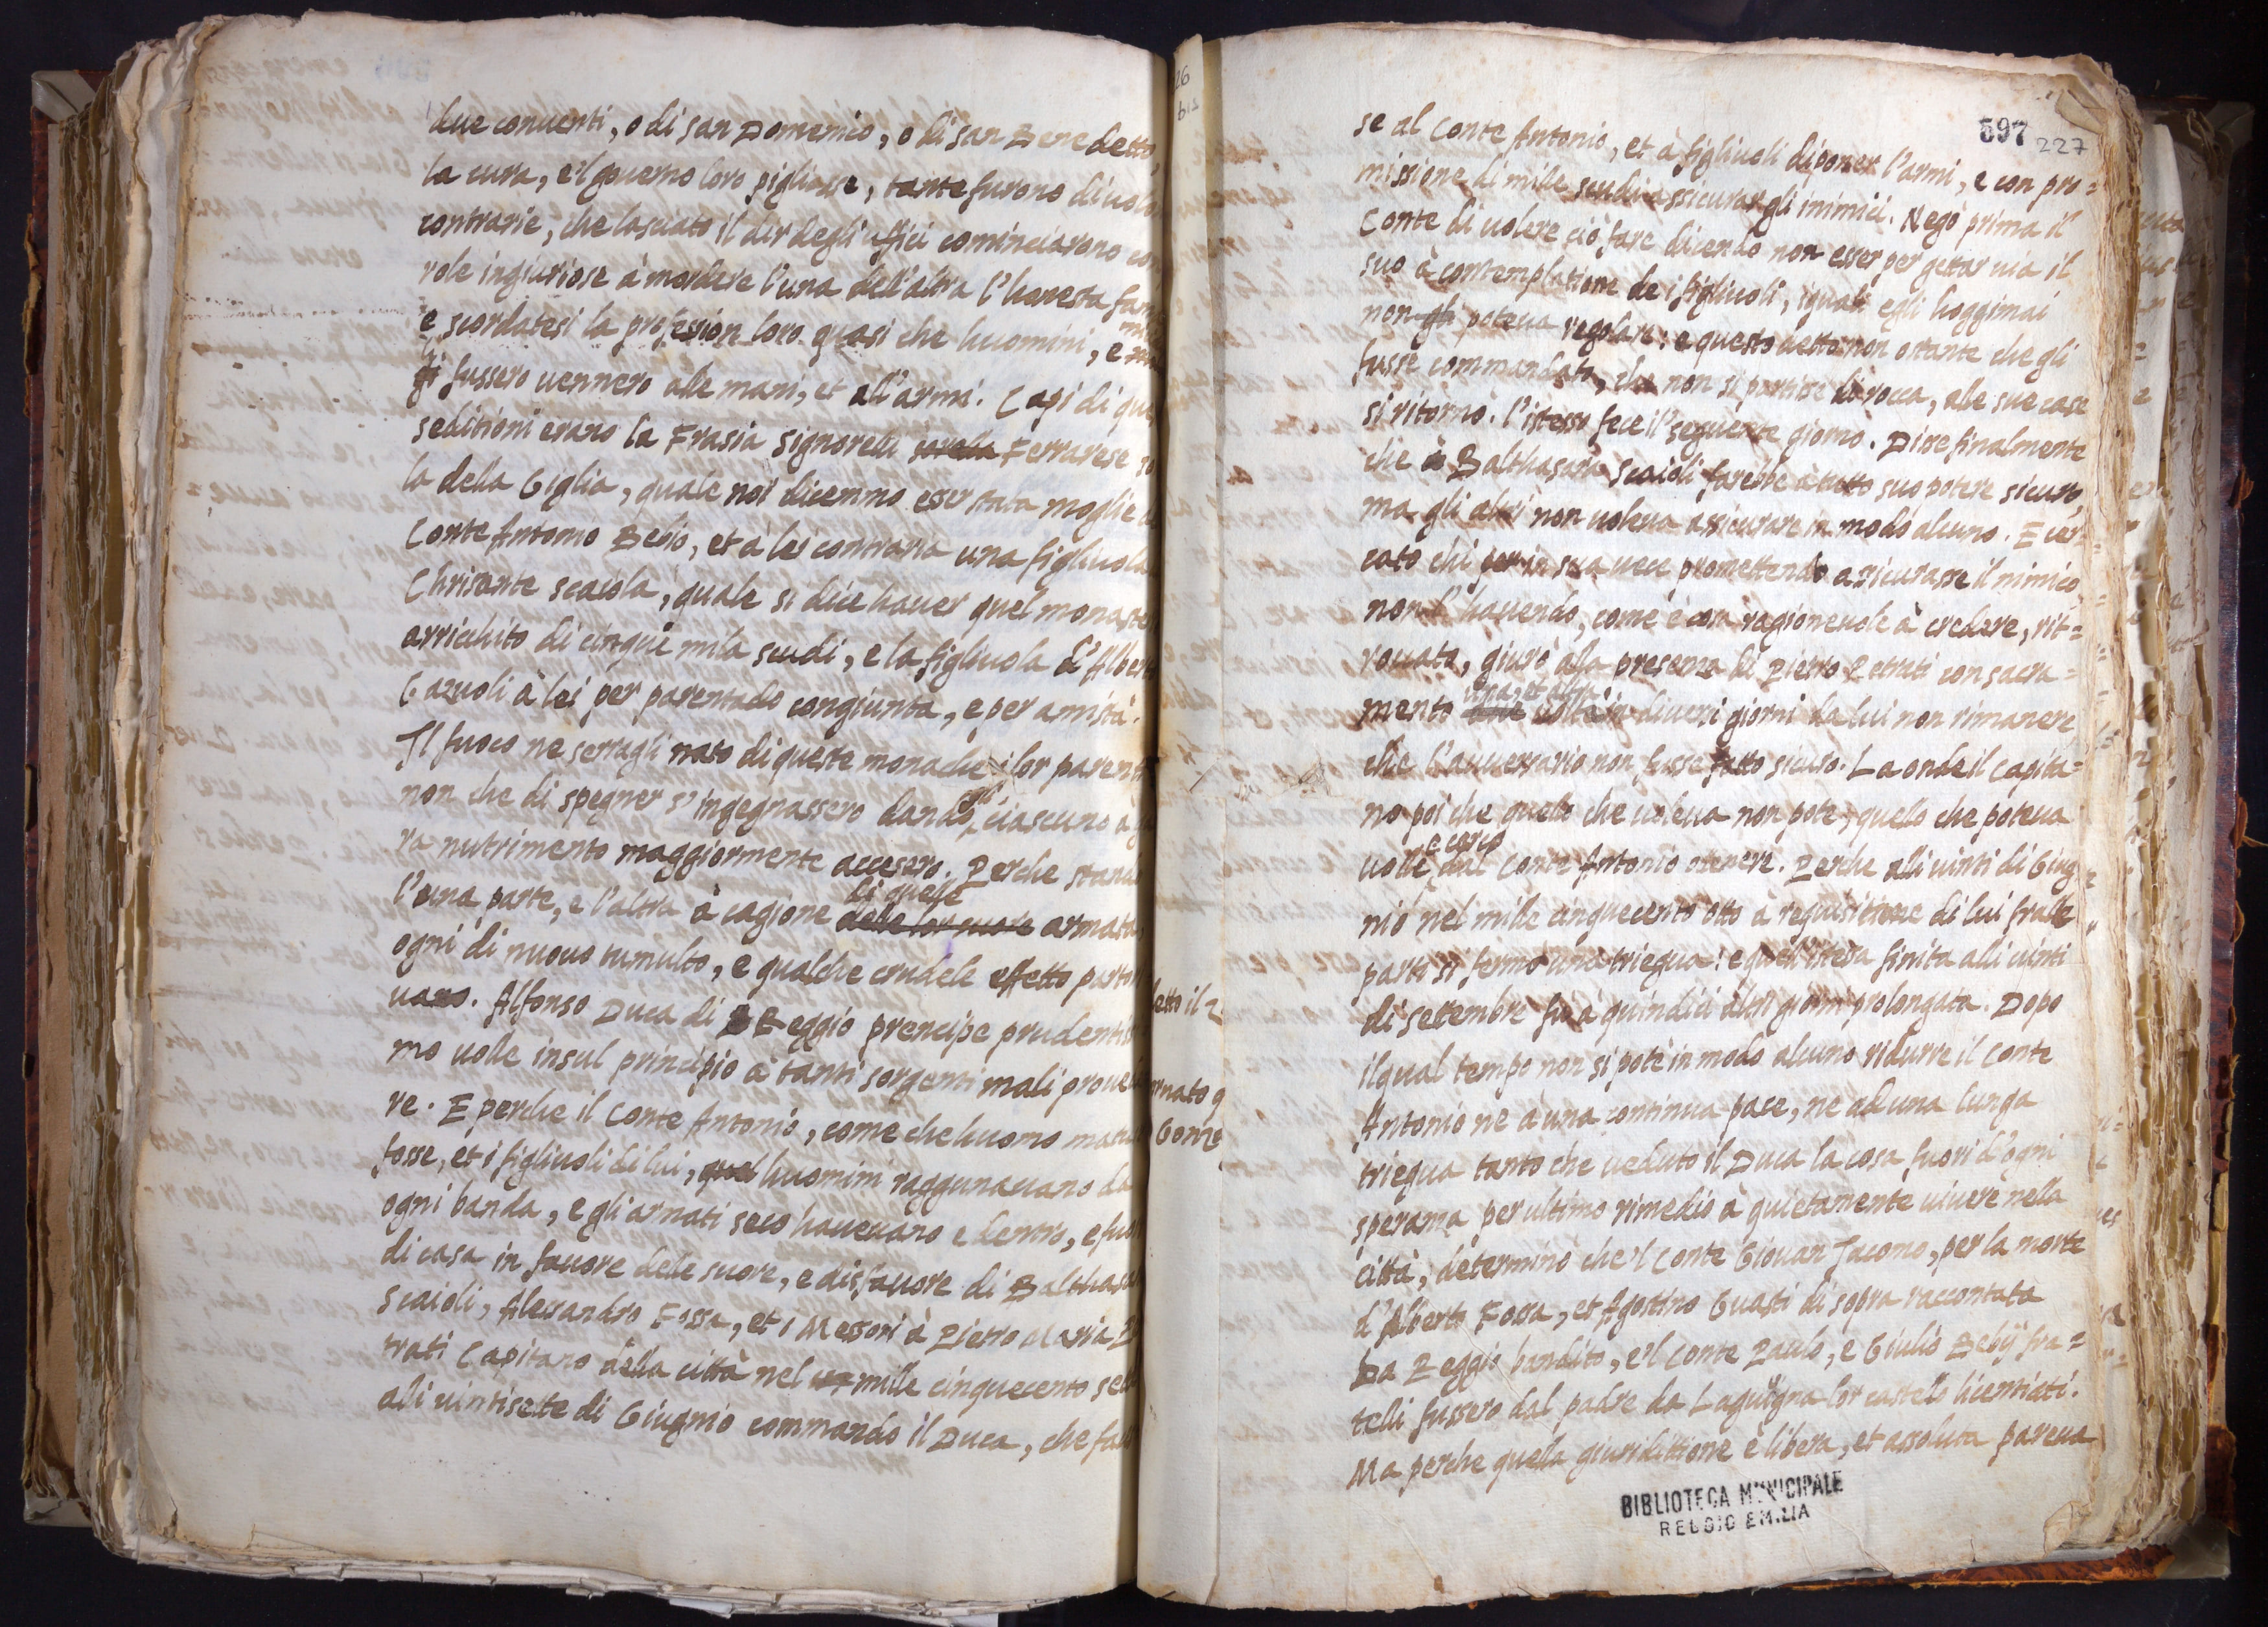 due conuenti, o di san Domenico, o di san Benedetto,
la cura, e'l gouerno loro pigliasse, tante furono di uolo
contrarie, che lasciato il dir degli uffici cominciarono co
role ingiuriose à mordere l'una dell'altra l'honesta fam
e scordatesi la profession loro quasi che huomini, e
fussero uennero ale mani, et all'armi. Capi di que
seditioni erano la Frasia Signorelli sorella Ferrarese so
la della Giglia, quale noi dicemmo esser stata moglie
Conte Antonio Bebio, et à lei contraria una figliuola
Chrisante scaiola, quale si dice hauer quel monaste
arricchito di cinque mila scudi, e la figliuola d'Alberto
Gazuoli à lei per parentado congiunta, e per amistà.
Il fuoco ne serragli nato di queste monache i lor parenti
non che di spegner s'ingegnassero dando ciascuno à
ra nutrimento maggiormente accesero. Perche stand
di quelle
l'una parte, e l'altra à cagione delle lor suore armata
ogni dì nuouo tumulto, e qualche crudele effetto parto
uano. Alfonso Duca di Reggio prencipe prudentiss
mo uolle insul principio à tanti sorgenti mali proue
re. E perche il Conte Antonio, come che huomo matu
fosse, et i figliuoli di lui, quel huomini raggunauano da
ogni banda, e gli armati seco haueuano e dentro, e fuo
di casa in fauore delle suore, e disfauore di Balthasa
scaioli, Alessandro Fossa, et i Messori à Pietro Maria
trati Capitano della città nel mille cinquecento se
alli uintisette di Giugnio commando il Duca, che fa
26
bis
detto il
rnato g
Gonz
597
227
se al Conte Antonio, et à figliuoli diponer l'armi, e con pro=
missione di mille scudi assicurar gli inimici. Negò prima il
Conte di uolere ciò fare dicendo non esser per gettar uia il
suo à contemplatione de i figliuoli, i quali egli hoggimai
non gli poteua regolare: e questo detto non ostante che gli
fusse commandato, che non si partisse di rocca, ale sue case
si ritornò. l'istesso fece il seguente giorno. Disse finalmente
che à Balthasara Scaioli farebbe à tutto suo potere sicuro,
ma gli altri non uoleua assicurare in modo alcuno. E cer=
cato chi per in sua uece promettendo assicurasse il nimico,
non l'hauendo, come è con ragioneuole à credere, rit=
rouato, giurò alla presenza di Pietro Petrati con sacra=
una, et altra
mento una uolta in diuersi giorni da lui non rimanere,
che l'auuersario non fusse fatto sicuro. La onde il Capita=
no poi che quello che uoleua non pote, quello che poteua
uolle dal Conte Antonio otenere. Perche alli uinti di Giug=
nio nel mille cinquecento otto à requisitione di lui fralle
parti si fermò una triegua: e quell'istessa finita alli uinti
di settembre fu à quindici altri giorni prolongata. Dopo
il qual tempo non si potè in modo alcuno ridurre il Conte
Antonio ne à una continua pace, ne ad una lunga
triegua tanto che ueduto il Duca la cosa fuori d'ogni
speranza per ultimo rimedio à quietamente uiuere nella
città, determinò che'l Conte Giouan Jacomo, per la morte
d'Alberto Fossa, et Agostino Guasti di sopra raccontata
Da Reggio bandito, e'l Conte Paulo, e Giulio Bebij fra=
telli fussero dal padre da Laguigna lor castello licentiati.
Ma perche quella giuridittione è libera, et assoluta pareua
BIBLIOTECA MUNICIPALE
REGGIO EMILIA